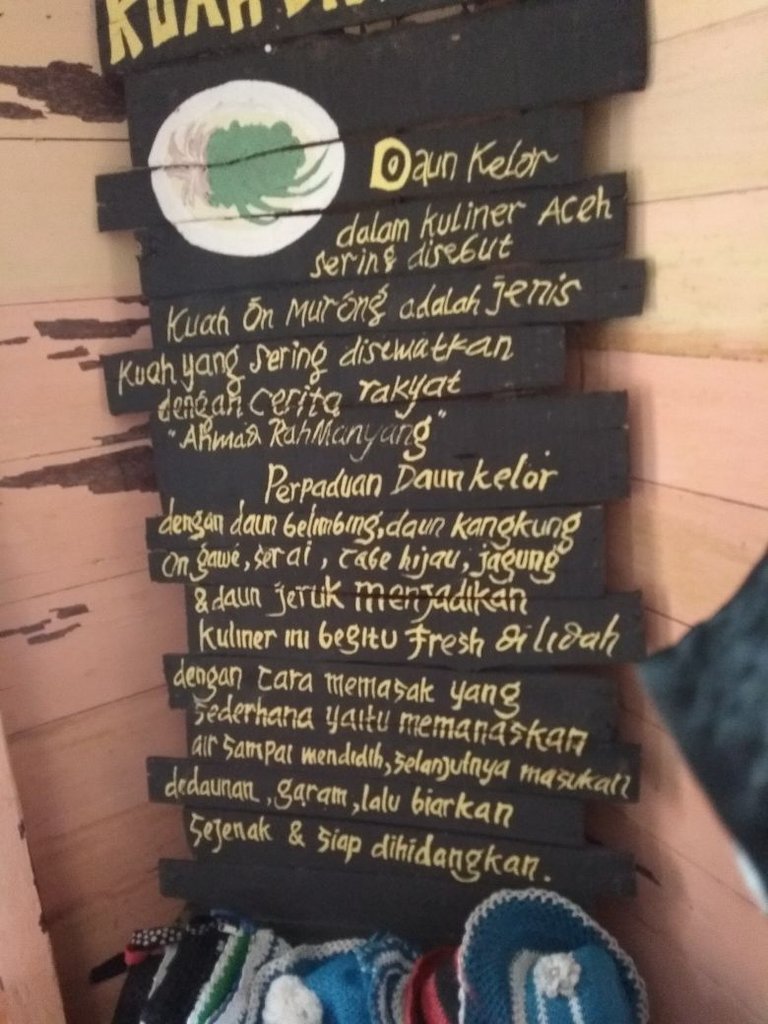 Daun Kelor
dalam kuliner Aceh
sering disebut
Kuah Ön Muröng adalah jenis
Kuah yang sering disewatkan
dengan cerita rakyat
"Ahmad RahManyang"
Perpaduan Daun kelor
dengan daun belimbing, daun kangkung
on gawé, serai, cabe hijau, jagung
& daun jeruk menjadikan
kuliner ini begitu fresh di lidah
dengan cara memasak yang
sederhana yaitu memanaskan
air sampai mendidih, selanjutnya masukan
dedaunan, garam, lalu biarkan
sejenak & siap dihidangkan.